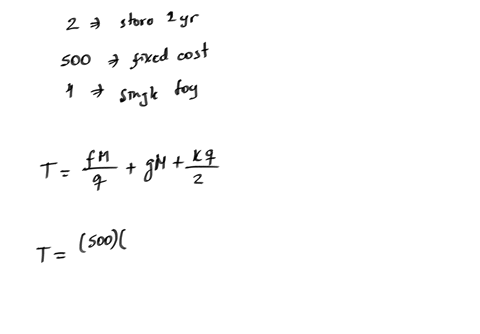 2 ⇒ store 1 yr
500 ⇒ fixed cost
4 ⇒ single toy
T = fM/q + gM + kq/2
T = (500)(